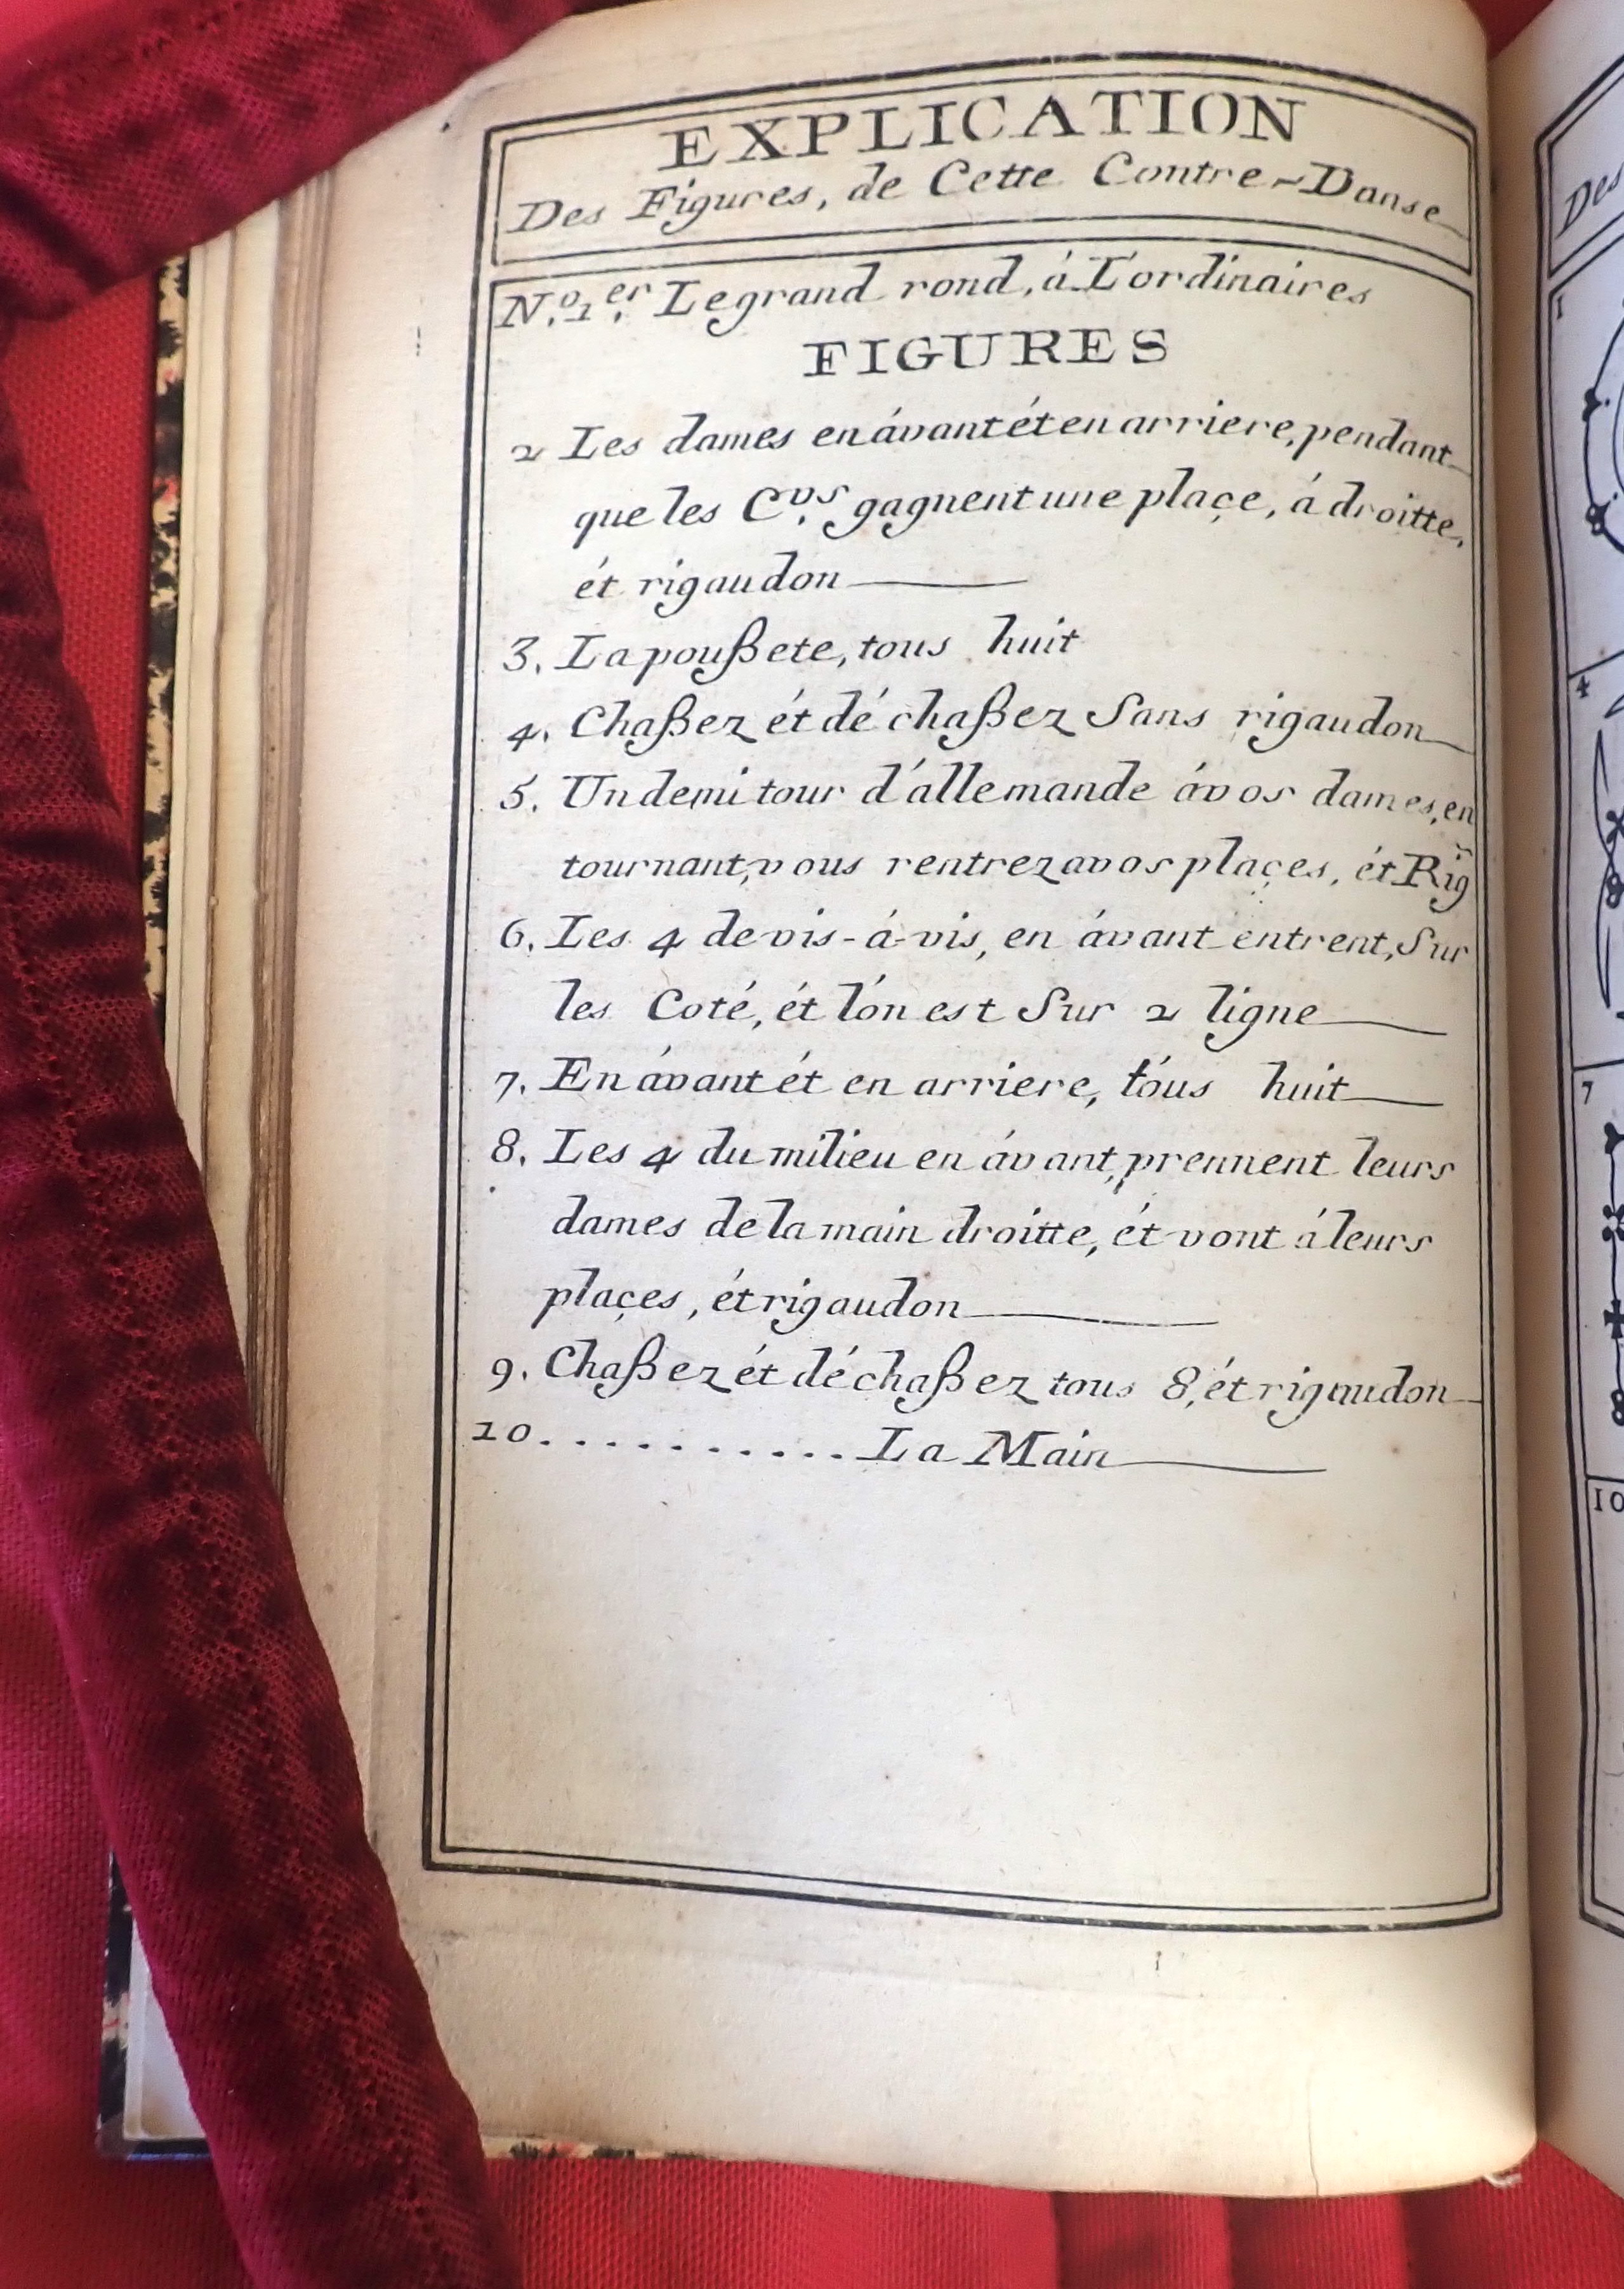 EXPLICATION
Des Figures, de Cette Contre-Danse
N.º 1.er Le grand rond, á L'ordinaires
FIGURES
2 Les dames en ávant ét en arriere, pendant
que les C.vs gagnent une plaçe, á droitte,
ét rigaudon
3. La poußete, tous huit
4. Chaßez ét dé chaßez Sans rigaudon
5. Un demi tour d'allemande ávos dames, en
tournant, vous rentrez avos plaçes, ét Rig
6. Les 4 de vis-á-vis, en ávant entrent, Sur
les Coté, ét l'ón est Sur 2 ligne
7. En ávant ét en arriere, tóus huit
8. Les 4 du milieu en ávant, prennent leurs
dames de la main droitte, ét vont á leurs
plaçes, ét rigaudon
9. Chaßez ét déchaßez tous 8, ét rigaudon
10. . . . . . . . . . . La Main
Des
1
4
7
10